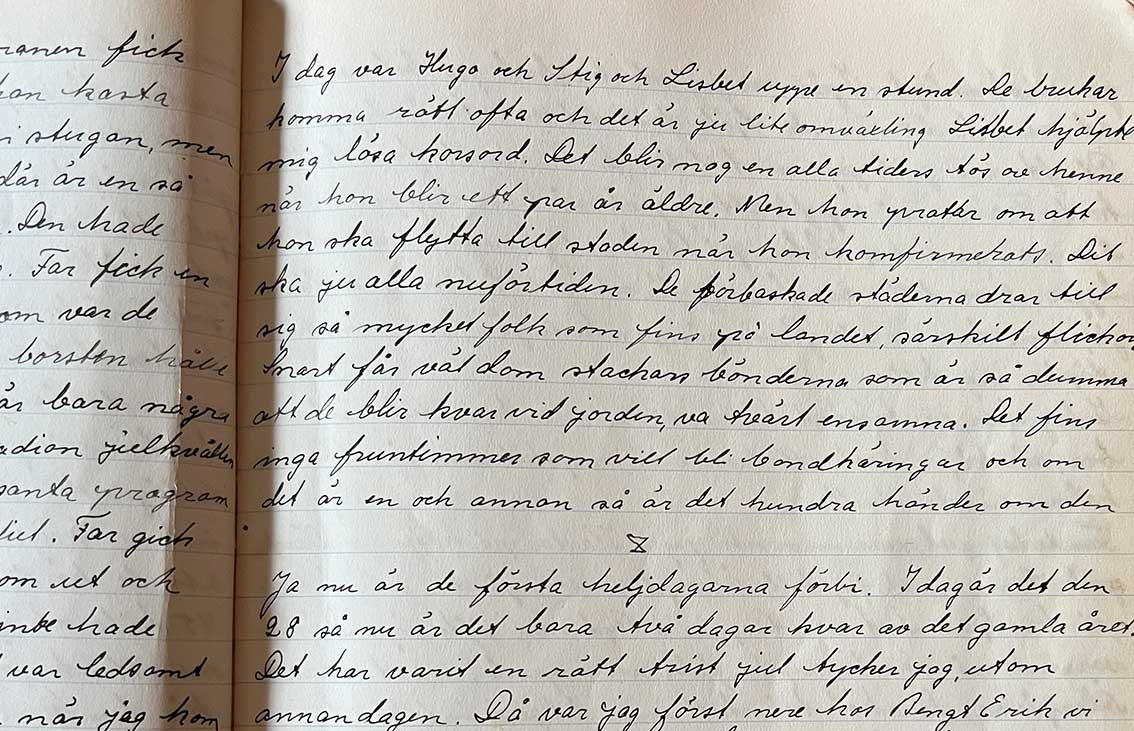 ranen fick
kan kasta
i stugan, men
där är en så
. Den hade
. Far fick en
om var de
borsten hålle
är bara några
adion julkvällen
santa program
jul. Far gick
om ut och
inte hade
var ledsamt
när jag kom
I dag var Hugo och Stig och Lisbet uppe en stund. De brukar
komma rätt ofta och det är ju lite omväxling Lisbet hjälpte
mig lösa korsord. Det blir nog en alla tiders tös av henne
när hon blir ett par år äldre. Men hon pratar om att
hon ska flytta till staden när hon komfirmerats. Dit
ska ju alla nuförtiden. De förbaskade städerna drar till
sig så mycket folk som fins på landet, särskilt flickor
Snart får väl dom stackars bönderna som är så dumma
att de blir kvar vid jorden, va tvärt ensamma. Det fins
inga fruntimmer som vill bli bondkäringar och om
det är en och annan så är det hundra händer om den
Ja nu är de första heljdagarna förbi. I dag är det den
28 så nu är det bara två dagar kvar av det gamla året.
Det har varit en rätt trist jul tycker jag, utom
annandagen. Då var jag först nere hos Bengt Erik vi